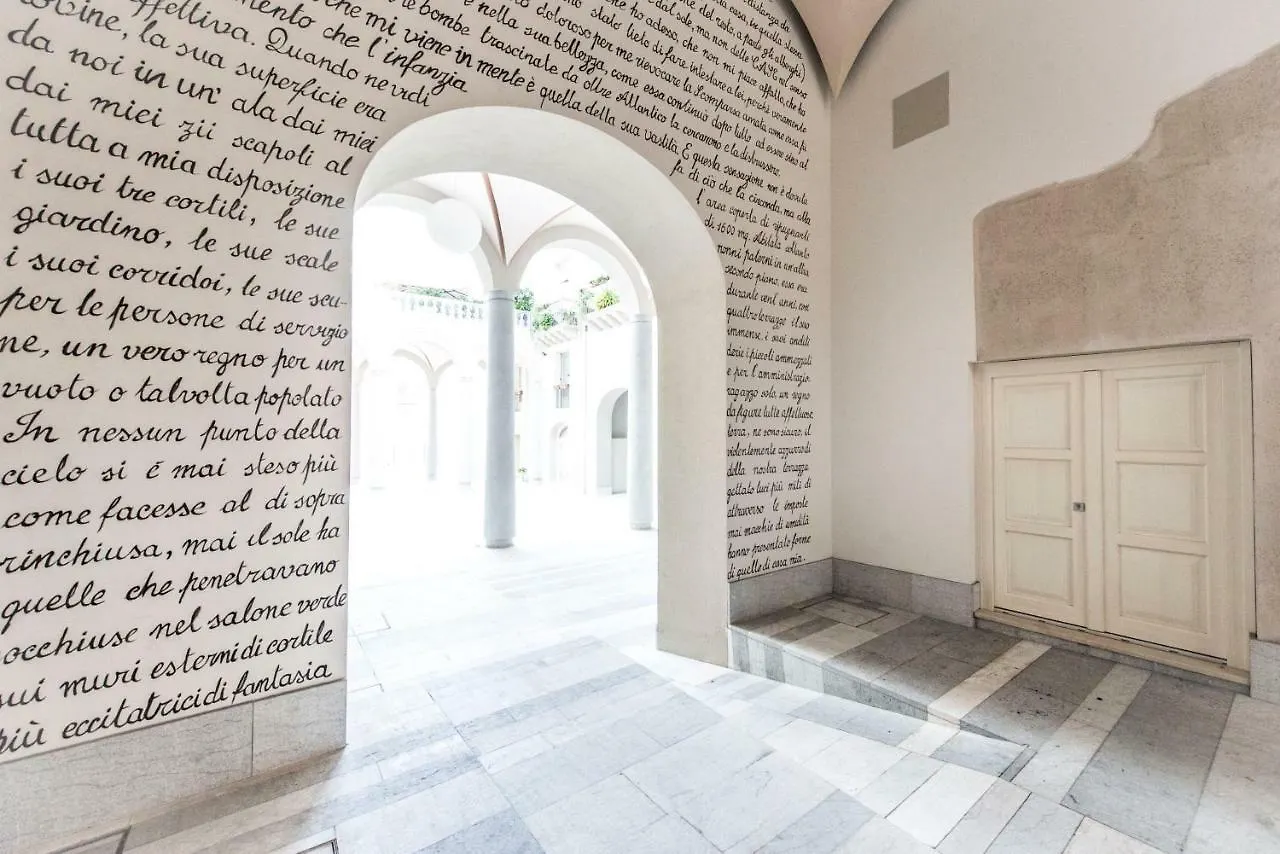 distanza da
casa, in quella stessa
del resto, a parte gli alberghi)
dal sole, ma non delle CASE nel senso
che ho adesso, che non mi piace affatto, che ho
stato lieto di fare intestare a lei, perchè veramente
doloroso per me rievocare la Scomparsa amata come essa fu
e nella sua bellezza, come essa continuò dopo tutto ad essere sino al
le bombe trascinate da oltre Atlantico la cercarono e la distrussero.
che mi viene in mente è quella della sua vastità. E questa sensazione non è dovuta
mento che l'infanzia
fa di ciò che la circonda, ma alla
affettiva. Quando ne vidi
l'area coperta di ripugnanti
rovine, la sua superficie era
di 1600 mq. Abitata soltanto
da noi in un' ala dai miei
nonni paterni in un'altra
dai miei zii scapoli al
secondo piano, essa era
tutta a mia disposizione
durante vent'anni, con
i suoi tre cortili, le sue
quattro terrazze il suo
giardino, le sue scale
immense, i suoi anditi
i suoi corridoi, le sue scu-
derie i piccoli ammezzati
per le persone di servizio
e per l'amministrazio
ne, un vero regno per un
ragazzo solo, un regno
vuoto o talvolta popolato
da figure tutte affettuose
In nessun punto della
terra, ne sono sicuro, il
cielo si é mai steso più
videntemente azzurro di
come facesse al di sopra
della nostra terrazza
rinchiusa, mai il sole ha
gettato luci più miti di
quelle che penetravano
attraverso le imposte
occhiuse nel salone verde
mai macchie di umidità
sui muri esterni di cortile
hanno presentato forme
più eccitatrici di fantasia
di quelle di casa mia.